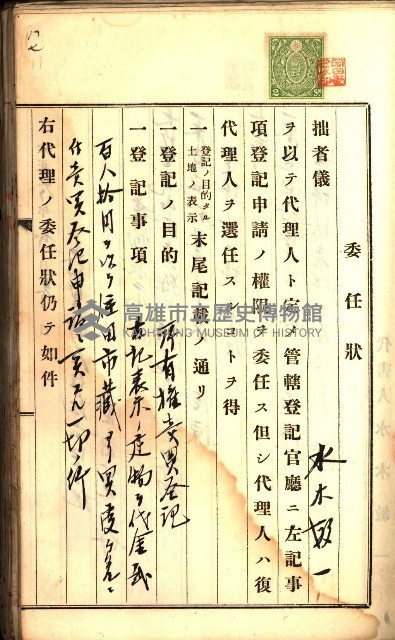 委任狀
水木敏一
拙者儀
ヲ以テ代理人ト定メ管轄登記官廳ニ左記事
項登記申請ノ權限ヲ委任ス但シ代理人ハ復
代理人ヲ選任スルコトヲ得
一 登記ノ目的タル土地ノ表示 末尾記載ノ通リ
一登記ノ目的 所有權賣買登記
一登記事項 右記表示ノ建物ヲ代金貳
百八拾円ヲ以テ
市藏ヨリ買受ケ
仕賣買登記申請
一切ノ件
右代理ノ委任狀仍テ如件
高雄市立歷史博物館
KAOHSIUNG MUSEUM OF HISTORY